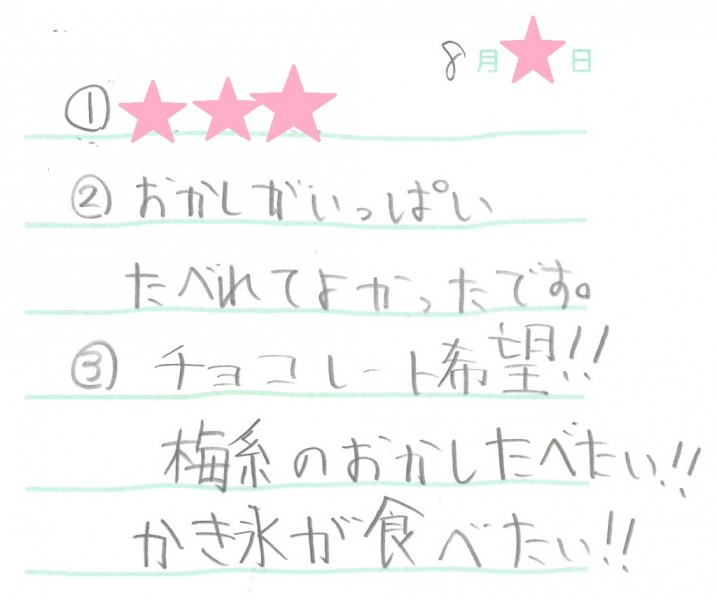 8月 日
①
② おかしがいっぱい
たべれてよかったです。
③ チョコレート希望!!
梅系のおかしたべたい!!
かき氷が食べたい!!